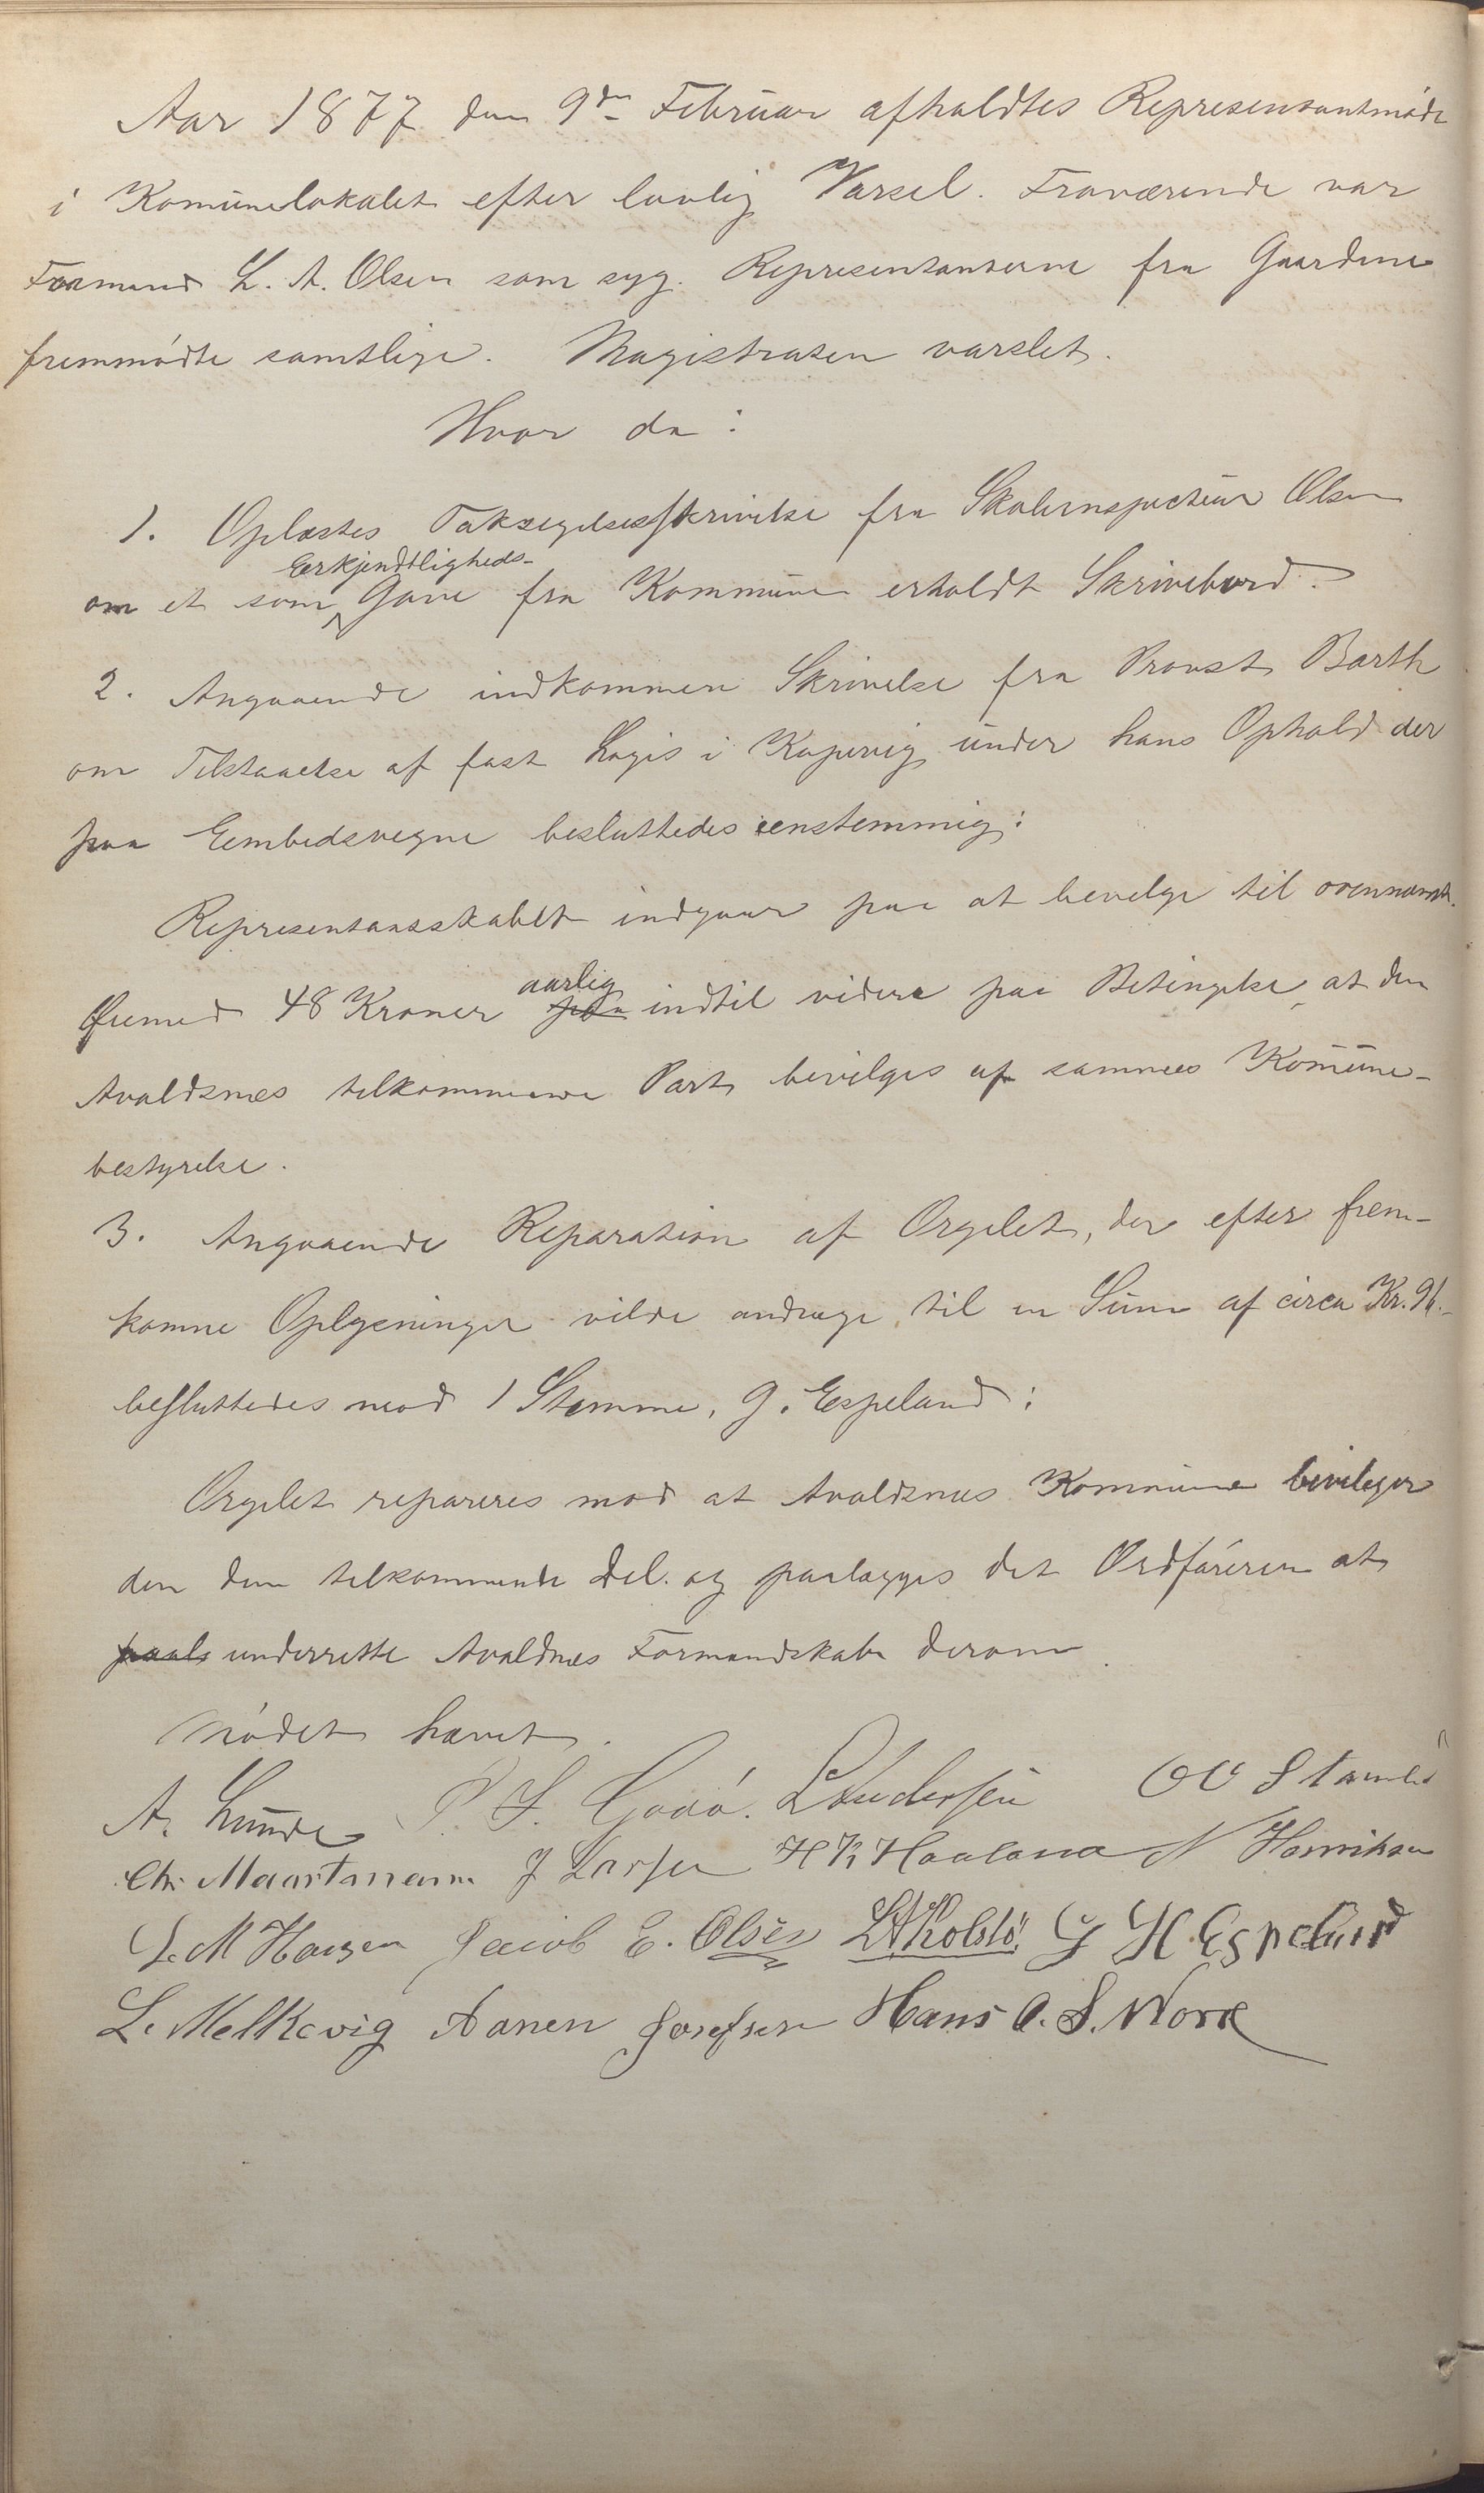 Aar 1877 den 9de Februar afholdtes Representantmøde
i Komunelokalet efter lovlig Varsel. Fraværende var
Formand L. A. Olsen som syg. Representanterne fra Gaardene
fremmødte samtlige. Magistraten varslet.
Hvor da:
1. Oplæstes Taksigelsesskrivelse fra Skoleinspecteur Olsen
Eerkjendtligheds-
om et som Gave fra Kommunen erholdt Skrivebord.
2. Angaaende indkommen Skrivelse fra Provst Barth
om Tilstaaelse af fast Logis i Kopervig under hans Ophold der
paa Eembedsvegne besluttedes eenstemmig:
Representantskabet indgaar paa at bevilge til ovennævnte
aarlig
Øiemed 48 Kroner paa indtil videre paa Betingelse, at den
Avaldsnes tilkommende Part bevilges af sammes Komune-
bestyrelse.
3. Angaaende Reparation af Orgelet, der efter frem-
komne Oplysninger vilde andrage til en Sum af circa Kr. 96.-
besluttedes mod 1 Stemme, G. Espeland:
Orgelet repareres mod at Avaldsnes Kommune bevilger
den dem tilkommende Del. og paalægges det Ordføreren at
paal underrette Avaldnes Formandskab derom.
Mødet hævet.
A. Lunde P. S. Godø. L Andersen O O Stange
Chr. Maartmann J Larsen H K Haaland N Henriksen
L. M Hansen Jacob E. Olsen L A Kolstø. G H Espeland
L. Melkevig Aanen Josefsen Hans A. S. Wore